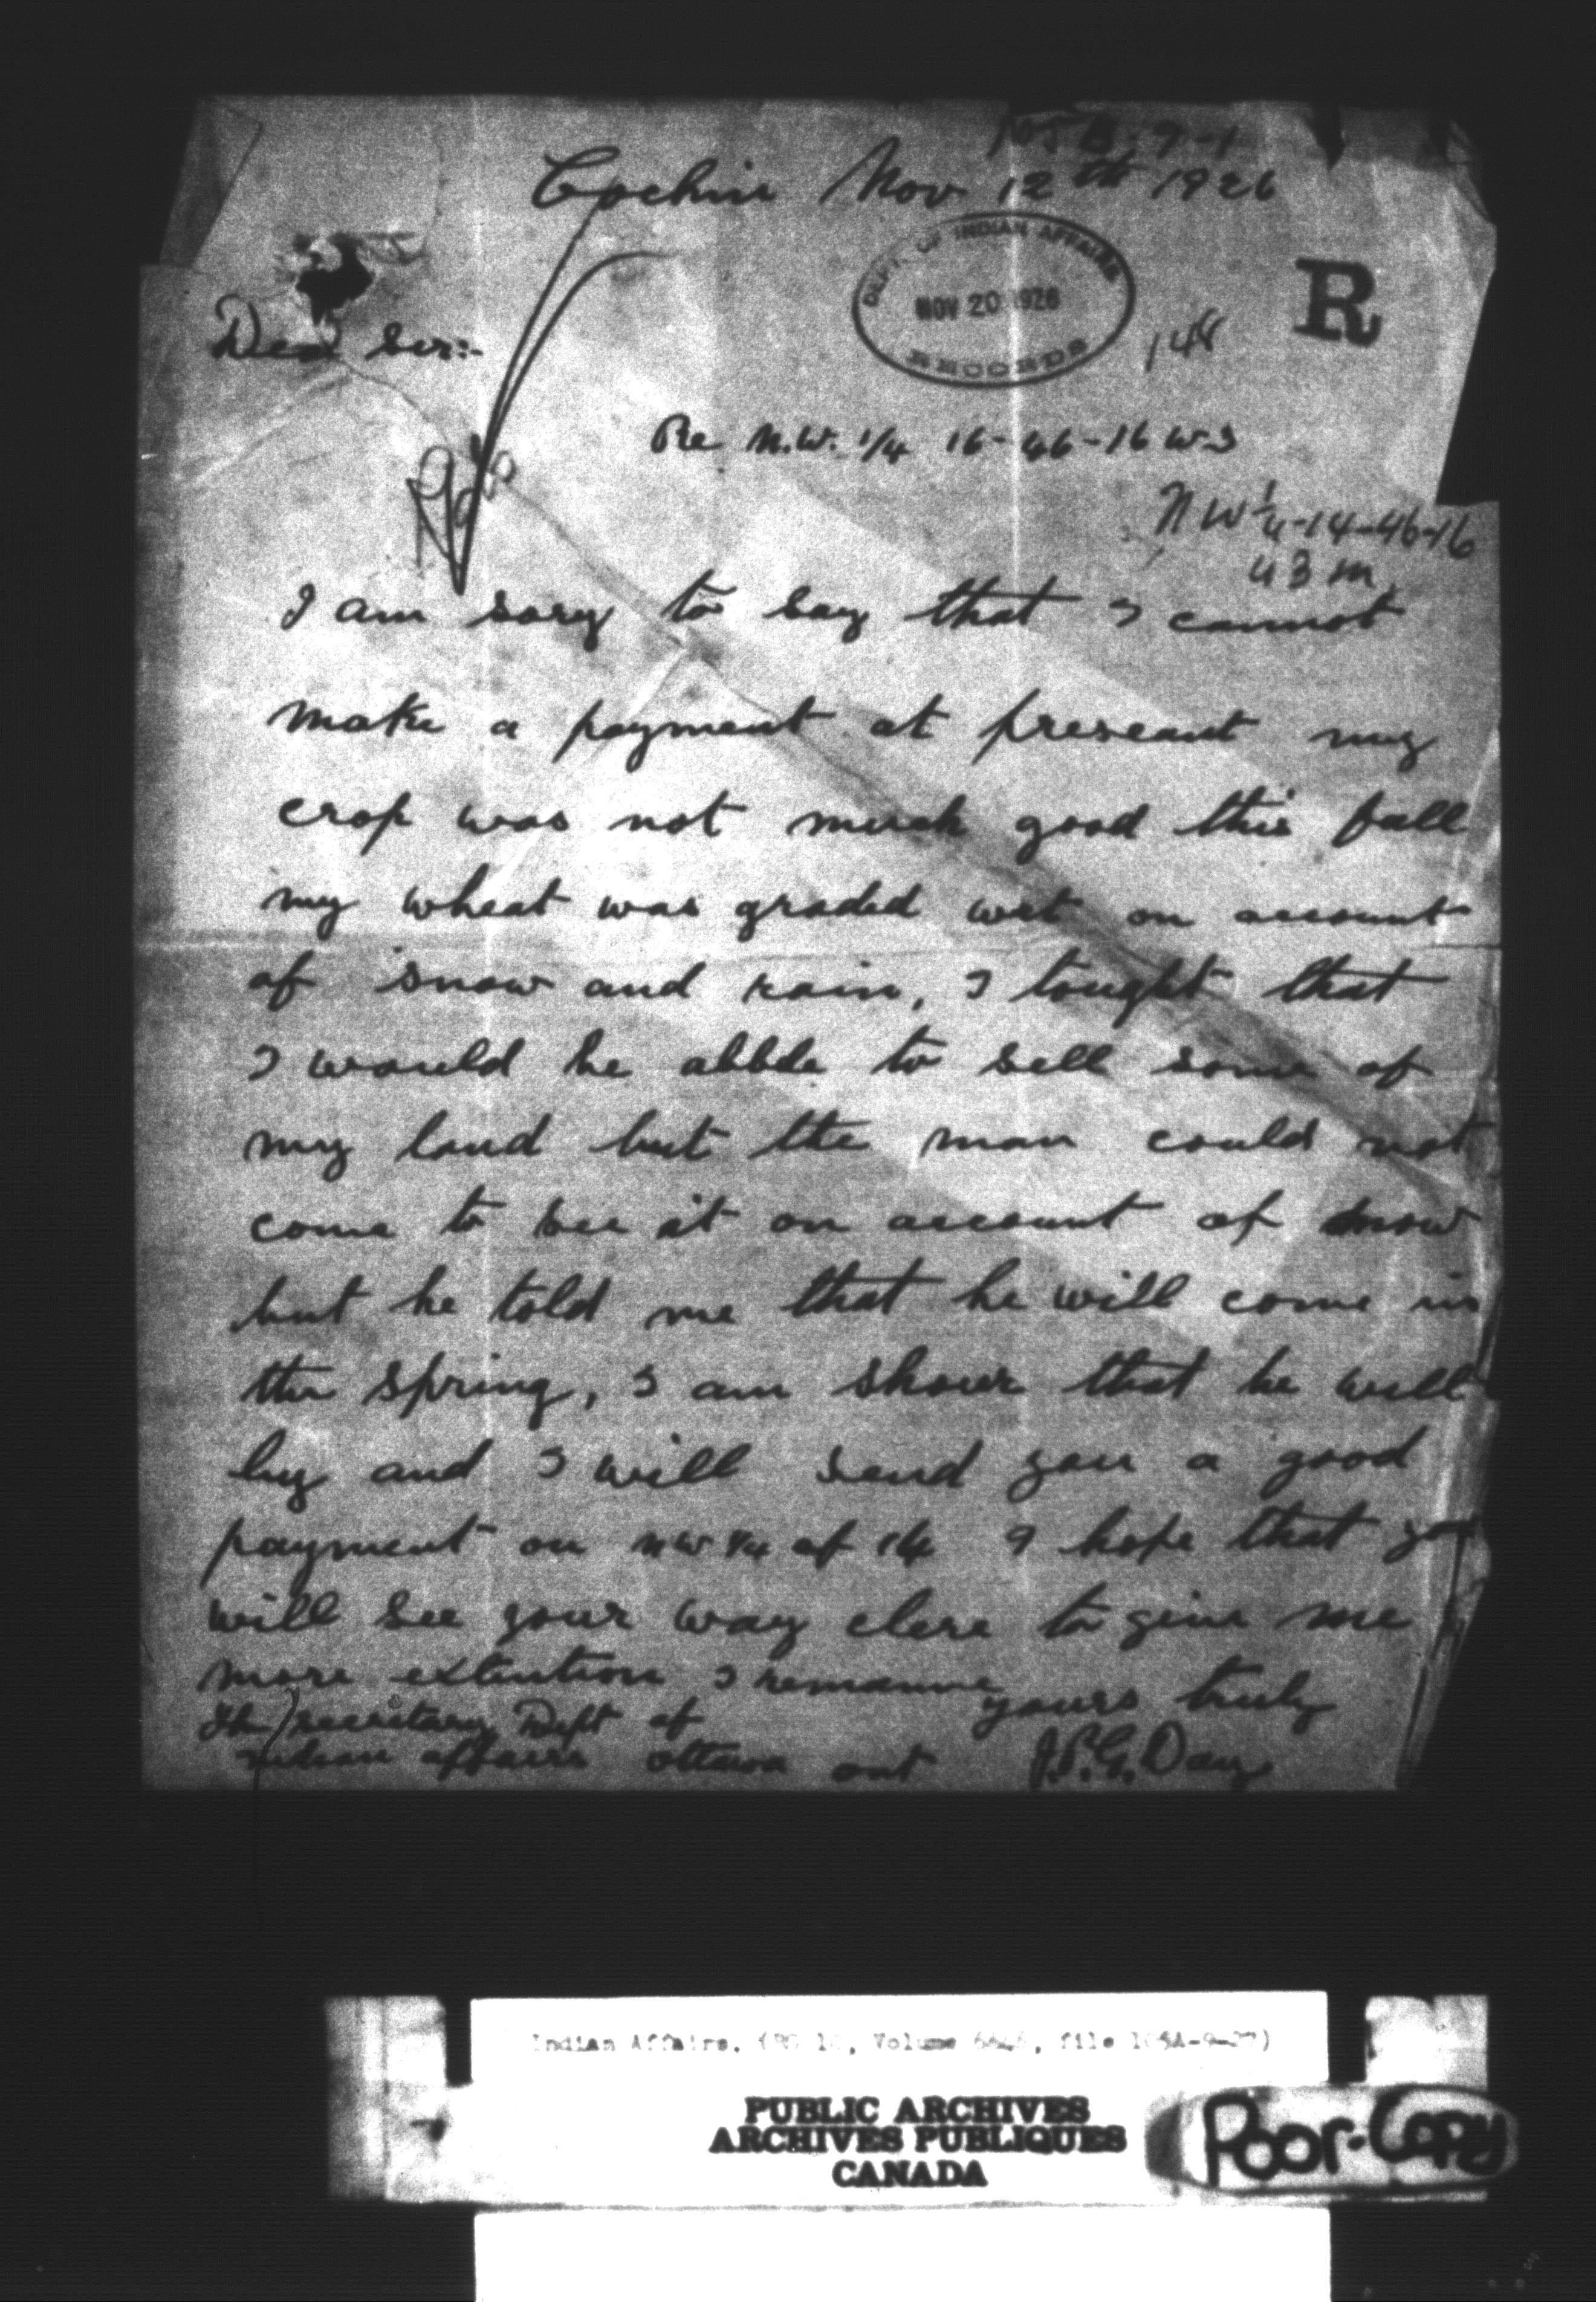 Cochin Nov 12th 1926
DEPT. OF INDIAN AFFAIRS
NOV 20 1926
RECORDS
R
148
Dear Sir:-
Re N.W. 1/4 16-46-16 W3
NW 1/4-14-46-16
W3M
I am sory to say that I cannot
make a payment at preseant my
crop was not much good this fall
my wheat was graded wet on account
of snow and rain, I tought that
I would be abble to sell some of
my land but the man could not
come to see it on account of snow
but he told me that he will come in
the spring, I am shour that he will
by and I will send you a good
payment on NW 1/4 of 14 I hope that you
will see your way clere to give me
more extention I remanne
yours truly
The secretary Dept of
indian affairs ottawa ont
J.P.G. Day
Indian Affairs. (RG 10, Volume file
PUBLIC ARCHIVES
ARCHIVES PUBLIQUES
CANADA
Poor-Copy